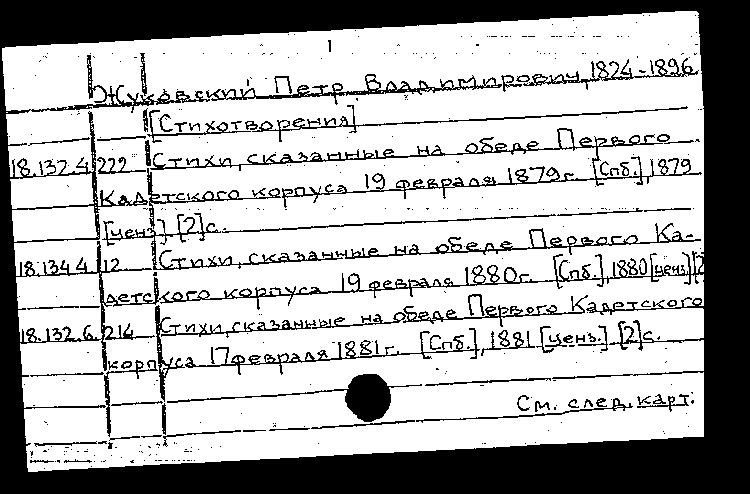 1
Жуковский Петр Владимирович, 1824-1896.
[Стихотворения]
18.132.4 222 Стихи, сказанные на обеде Первого
Кадетского корпуса 19 февраля 1879г. [Спб.], 1879
[ценз.]. [2]с.
18.134.4. 12 Стихи, сказанные на обеде Первого Ка-
детского корпуса 19 февраля 1880г. [Спб.], 1880 [ценз.] [2
18.132.6. 214 Стихи, сказанные на обеде Первого Кадетского
корпуса 17 февраля 1881г. [Спб.], 1881 [ценз.]. [2]с.
См. след. карт.